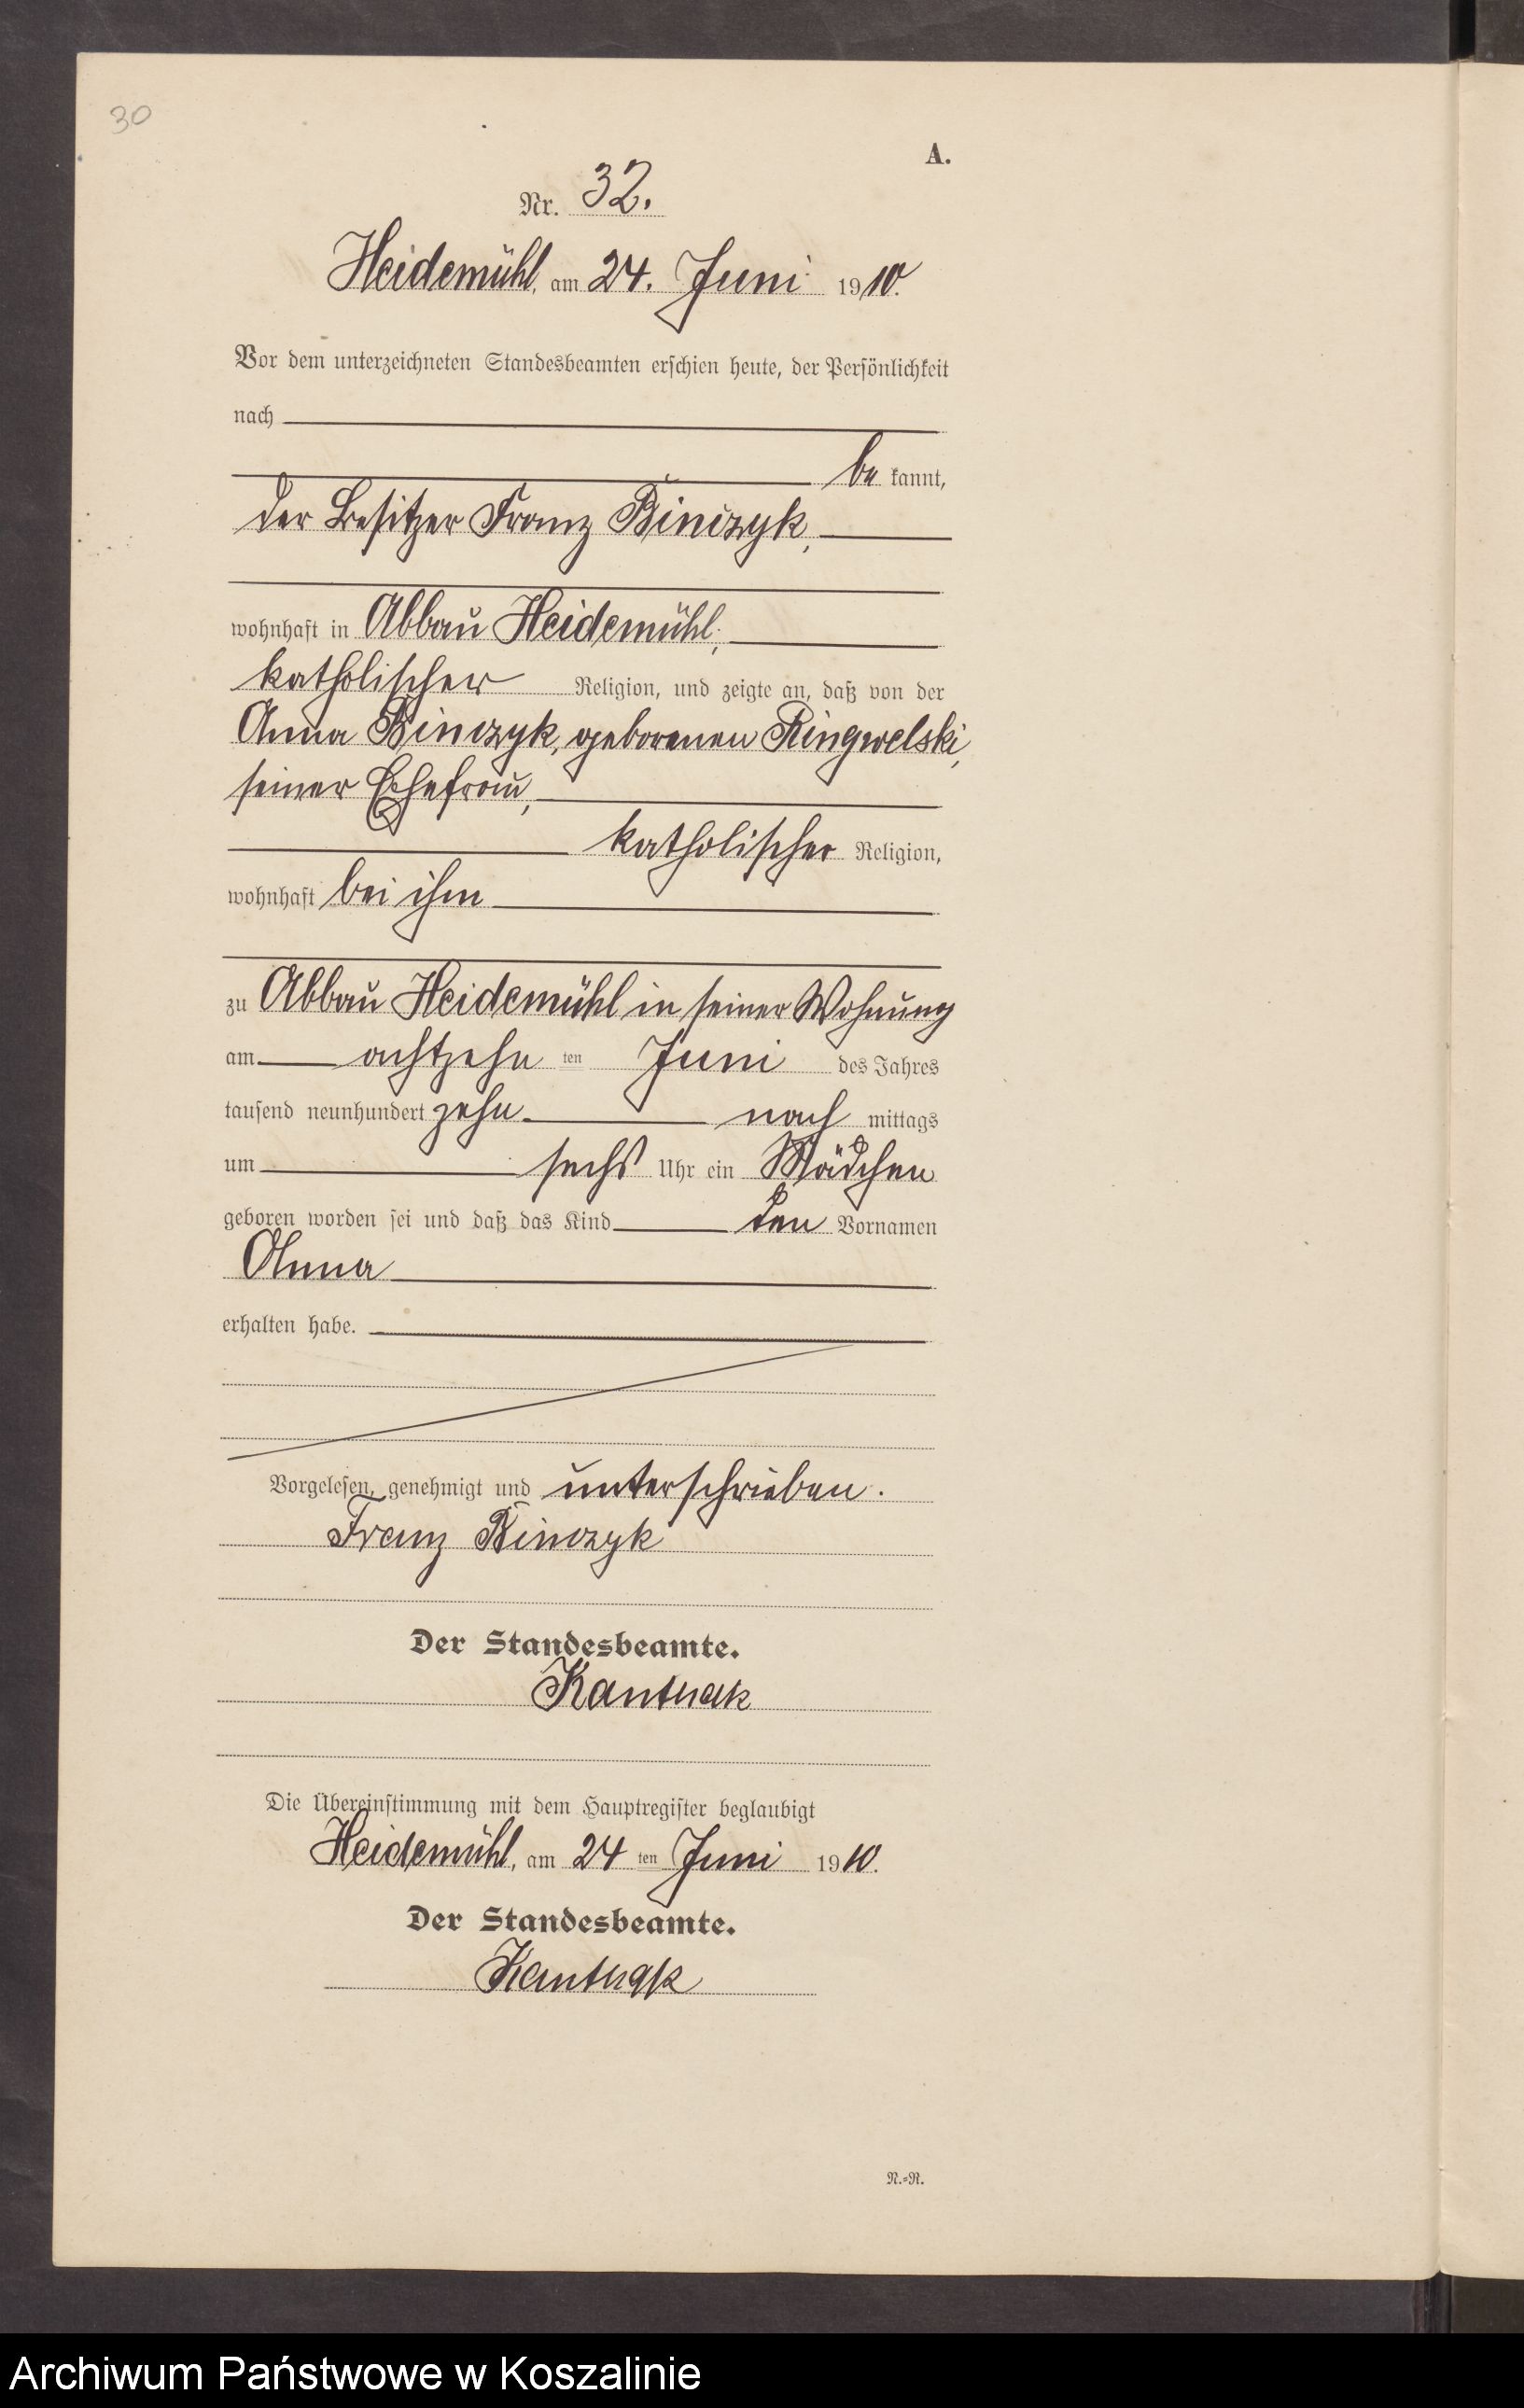 30
A.
Nr. 32.
Heidemühl, am 24. Juni 1910.
Vor dem unterzeichneten Standesbeamten erschien heute, der Persönlichkeit
nach
be kannt,
der Besitzer Franz Binczyk,
wohnhaft in Abbau Heidemühl,
katholischer Religion, und zeigte an, daß von der
Anna Binczyk, geborenen Ringwelski,
seiner Ehefrau,
katholischer Religion,
wohnhaft bei ihm
zu Abbau Heidemühl in seiner Wohnung
am achtzehn ten Juni des Jahres
tausend neunhundert zehn nach mittags
um sechs Uhr ein Mädchen
geboren worden sei und daß das Kind den Vornamen
Anna
erhalten habe.
Vorgelesen, genehmigt und unterschrieben.
Franz Binczyk
Der Standesbeamte.
Kanthak
Die Übereinstimmung mit dem Hauptregister beglaubigt
Heidemühl, am 24 ten Juni 1910.
Der Standesbeamte.
Kanthak
N.=R.
Archiwum Państwowe w Koszalinie